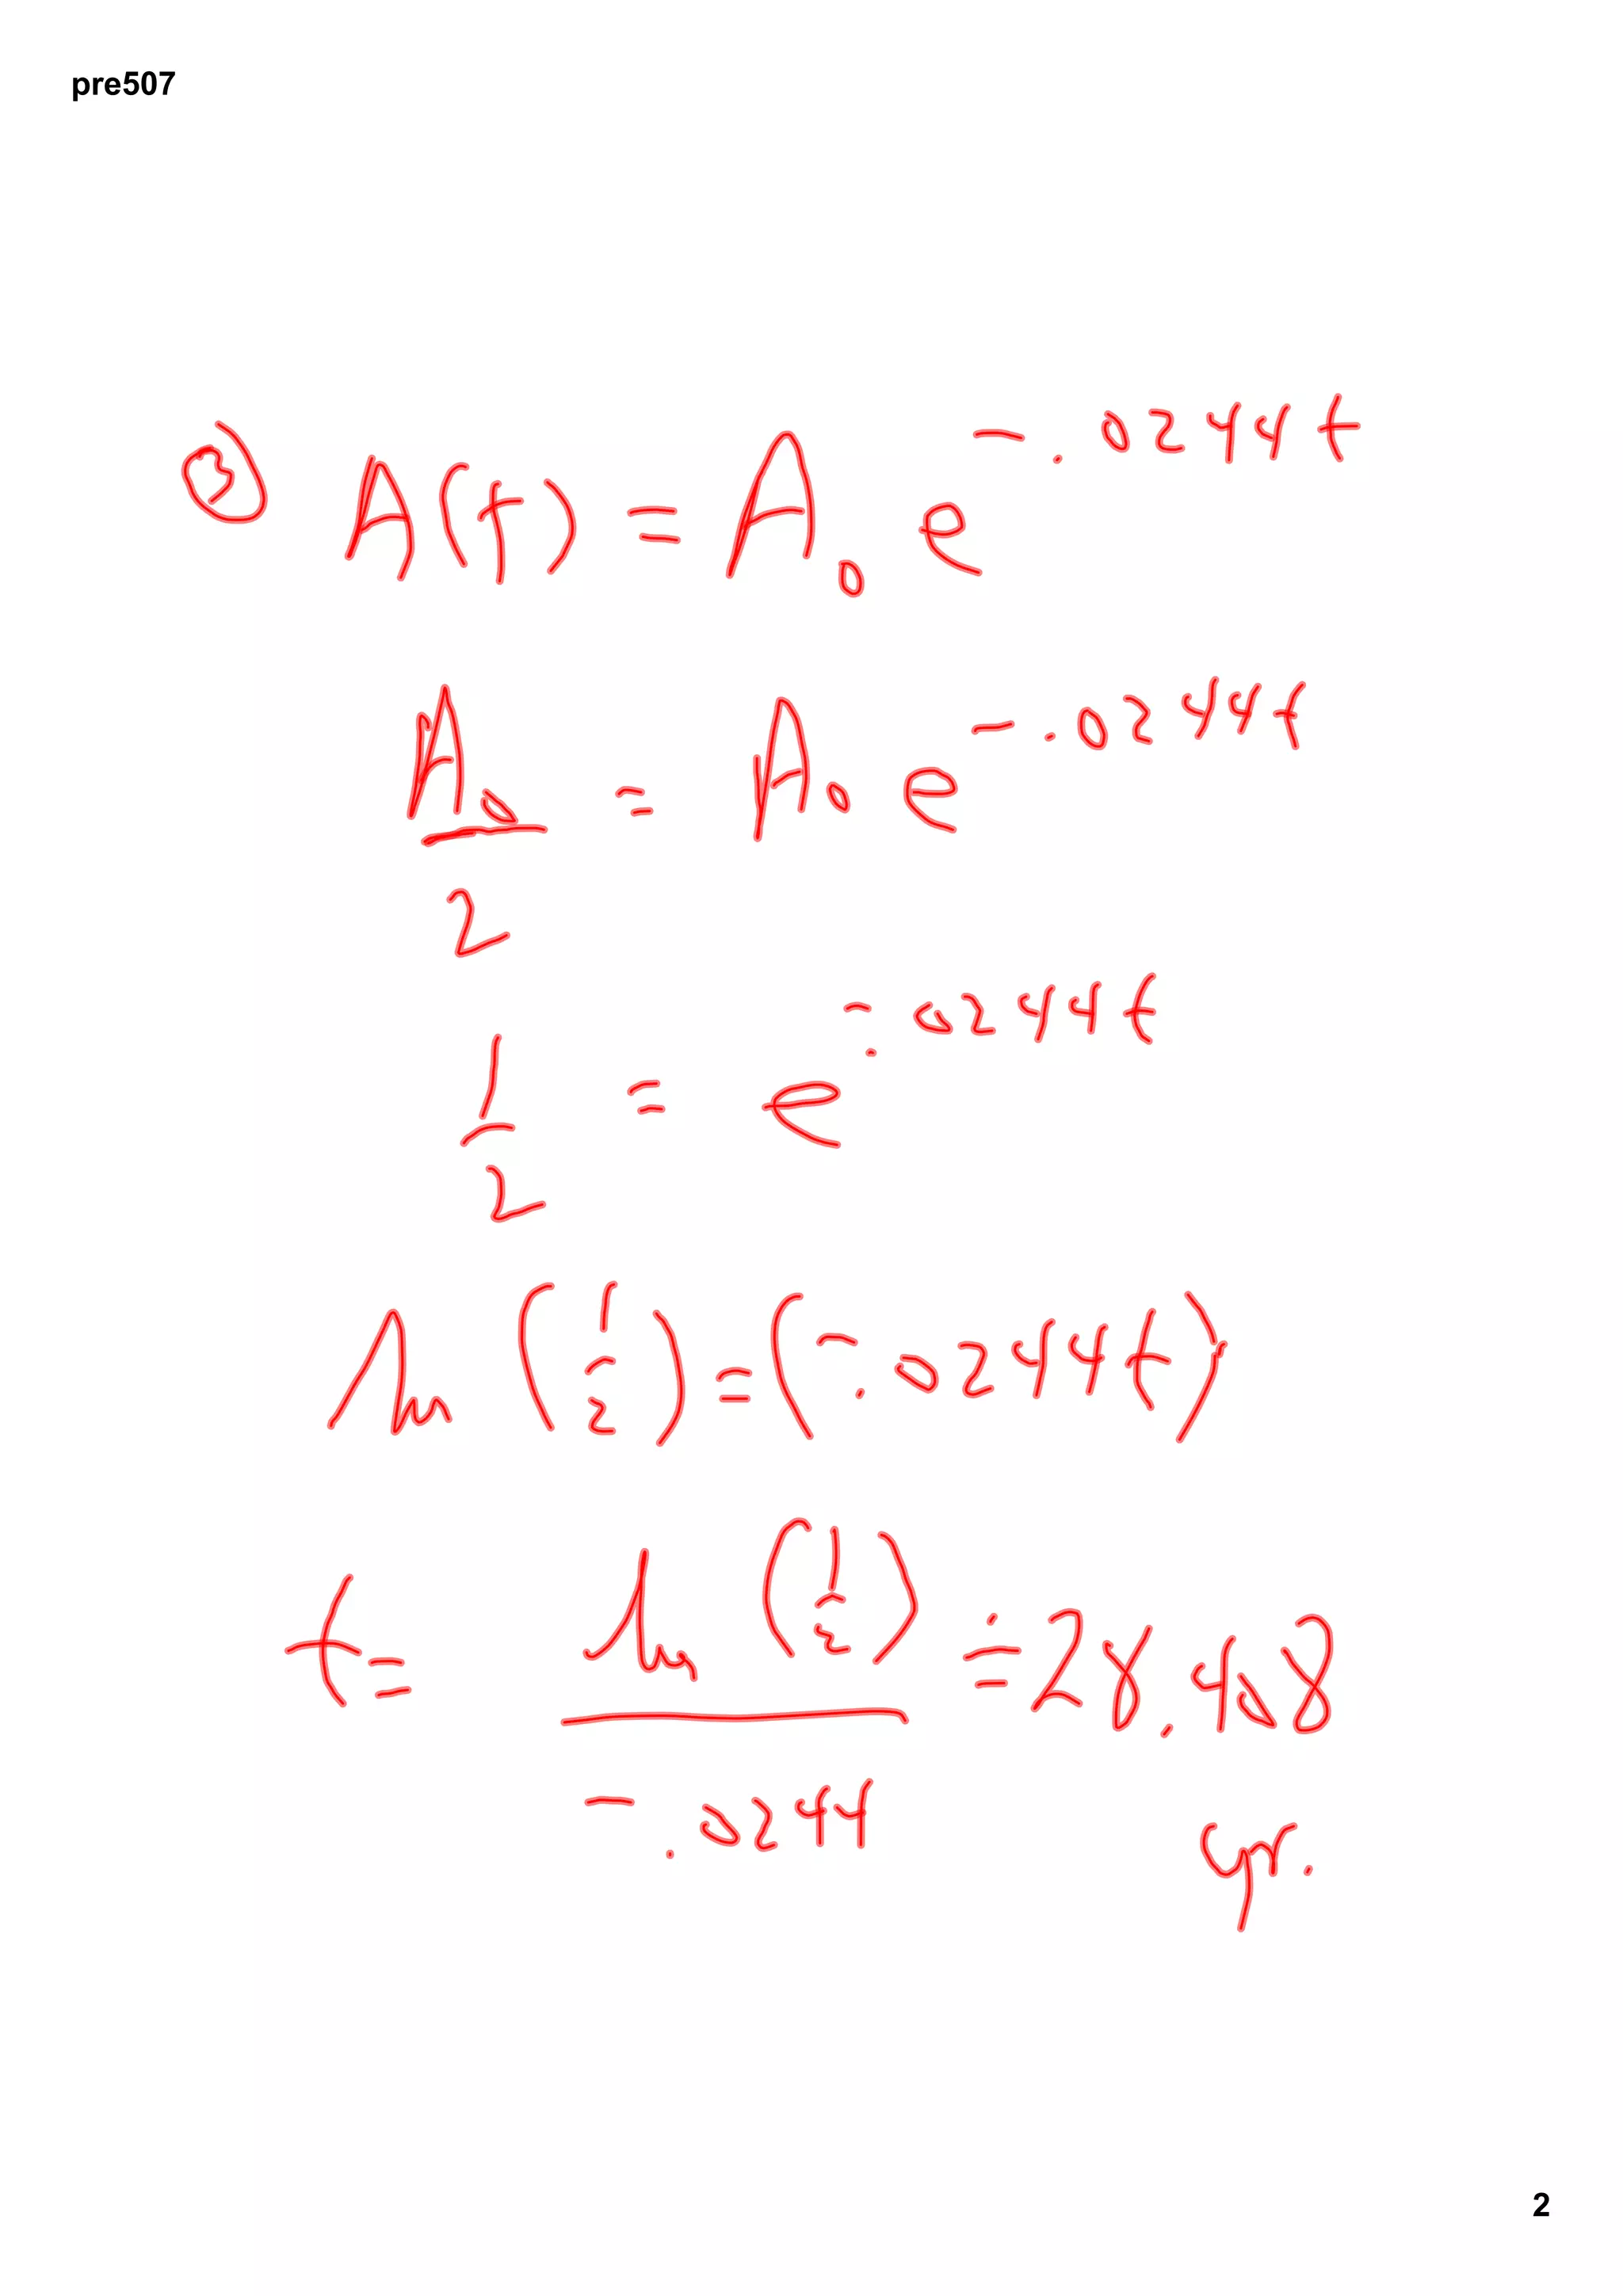 pre507
③ A(t) = A₀ e^{-.0244t}
A₀/2 = A₀ e^{-.0244t}
1/2 = e^{-.0244t}
ln (1/2) = (-.0244t)
t = ln (1/2) / -.0244 ≐ 28.408
yr.
2